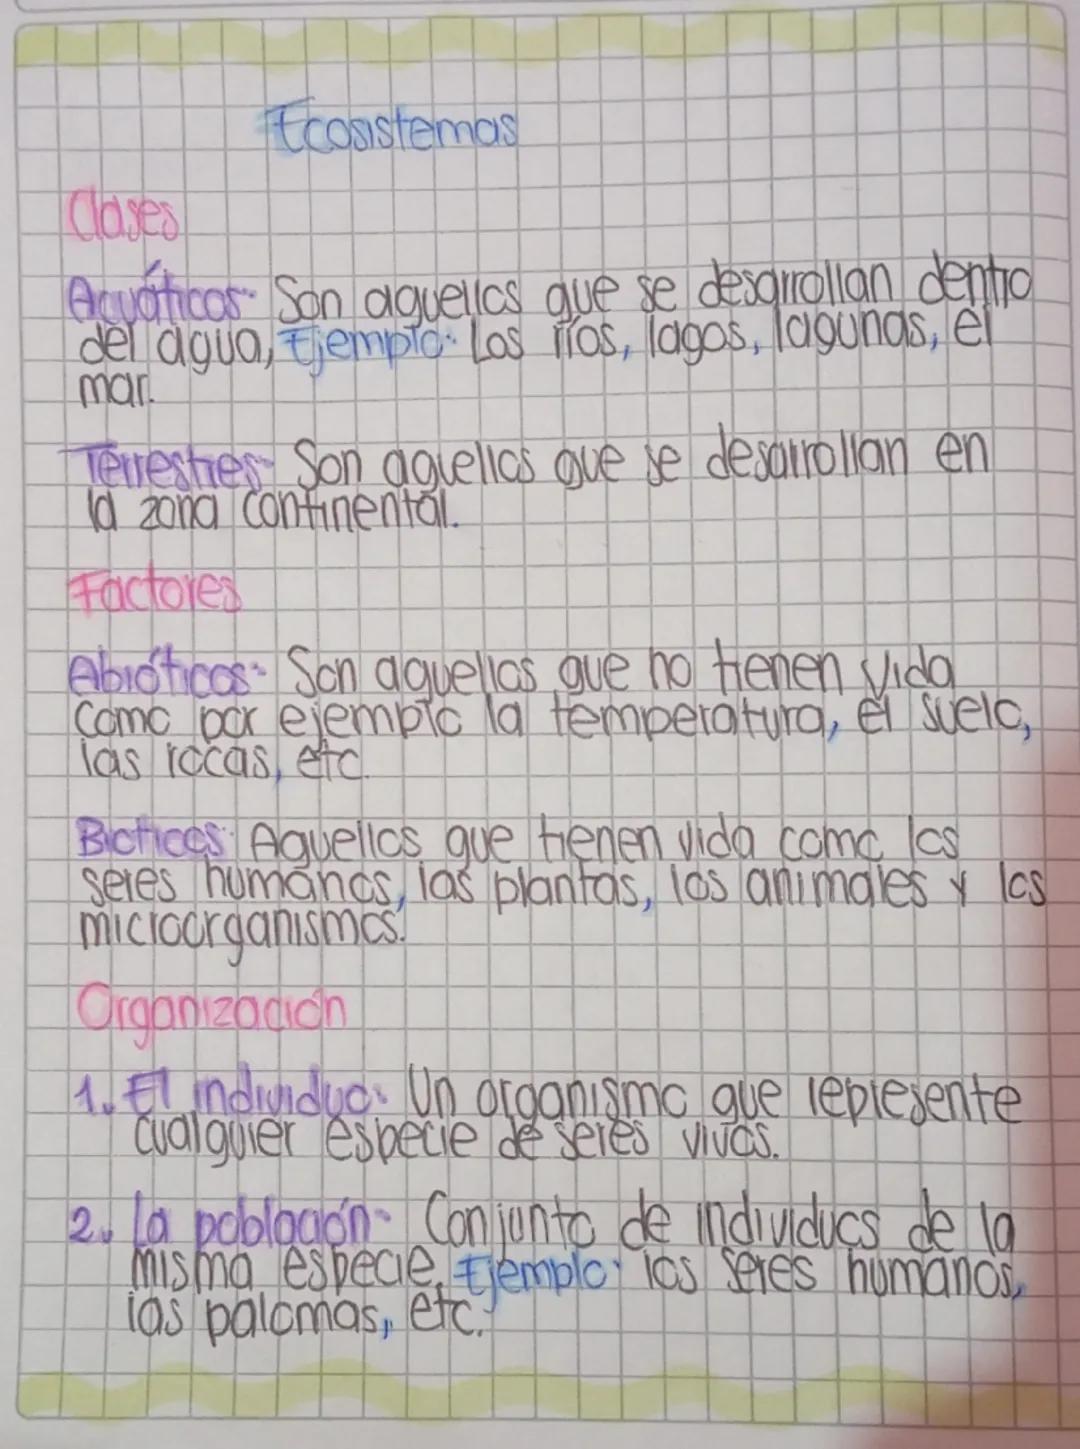 Ecosistemas
Clases
Acuáticos: Son aquellos que se desarrollan dentro
del agua, Ejemplo: Los ríos, lagos, lagunas, el
mar.
Terrestres: Son aquellos que se desarrollan en
la zona continental.
Factores
Abióticos: Son aquellos que no tienen vida
como por ejemplo la temperatura, el suelo,
las rocas, etc.
Bioticos: Aquellos que tienen vida como los
seres humanos, las plantas, los animales y los
microorganismos.
Organización
1. El individuo: Un organismo que represente
cualquier especie de seres vivos.
2. La población: Conjunto de individuos de la
misma especie. Ejemplo: los seres humanos,
las palomas, etc.